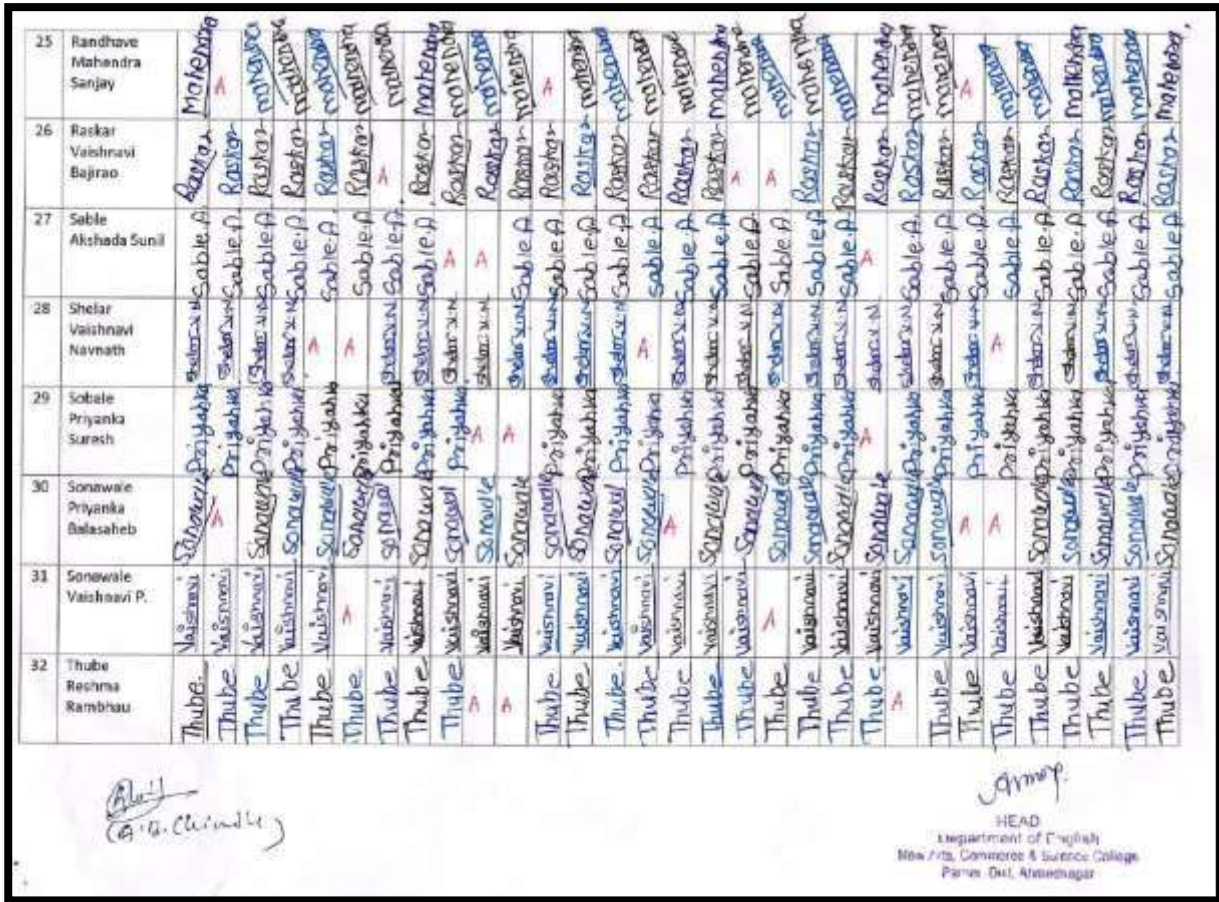 25 Randhave Mahendra A mahendra mahendra mahendra mahendra mahendra mahendra mahendra mahendra mahendra A mahendra mahendra mahendra mahendra mahendra mahendra mahendra mahendra mahendra mahendra mahendra A mahendra mahendra mahendra mahendra mahendra mahendra
Mahendra
Sanjay
26 Raskar Raskar Raskar Raskar Raskar Raskar Raskar A Raskar Raskar Raskar Raskar Raskar Raskar Raskar Raskar Raskar Raskar A A Raskar Raskar Raskar Raskar Raskar Raskar Raskar Raskar Raskar Raskar Raskar Raskar
Vaishnavi
Bajirao
27 Sable Sable.A. Sable.A Sable.A Sable.A Sable.A Sable.A Sable.A Sable.A A A Sable.A Sable.A Sable.A Sable.A Sable.A Sable.A Sable.A Sable.A Sable.A Sable.A Sable.A A Sable.A Sable.A Sable.A Sable.A Sable.A Sable.A Sable.A Sable.A Sable.A
Akshada Sunil
28 Shelar Shelar V.N Shelar V.N Shelar V.N Shelar V.N A A Shelar V.N Shelar V.N Shelar V.N Shelar V.N Shelar V.N Shelar V.N Shelar V.N Shelar V.N A Shelar V.N Shelar V.N Shelar V.N Shelar V.N Shelar V.N Shelar V.N Shelar V.N Shelar V.N Shelar V.N Shelar V.N A Shelar V.N Shelar V.N Shelar V.N Shelar V.N Shelar V.N
Vaishnavi
Navnath
29 Sobale Priyanka Priyanka Priyanka Priyanka Priyanka Priyanka Priyanka Priyanka Priyanka A A Priyanka Priyanka Priyanka Priyanka Priyanka Priyanka Priyanka Priyanka Priyanka Priyanka A Priyanka Priyanka Priyanka Priyanka Priyanka Priyanka Priyanka Priyanka Priyanka
Priyanka
Suresh
30 Sonawale Sonawale A Sonawale Sonawale Sonawale Sonawale Sonawal Sonawale Sonawal Sonawale Sonawale Sonawale Sonawale Sonawal Sonawale A Sonawale Sonawale Sonawale Sonawale Sonawale Sonawale Sonawale Sonawale A A Sonawale Sonawale Sonawale Sonawale Sonawale
Priyanka
Balasaheb
31 Sonawale Vaishnavi Vaishnavi Vaishnavi Vaishnavi Vaishnavi A Vaishnavi Vaishnavi Vaishnavi Vaishnavi Vaishnavi Vaishnavi Vaishnavi Vaishnavi Vaishnavi Vaishnavi Vaishnavi Vaishnavi A Vaishnavi Vaishnavi Vaishnavi Vaishnavi Vaishnavi Vaishnavi Vaishnavi Vaishnavi Vaishnavi Vaishnavi Vaishnavi Vaishnavi
Vaishnavi P.
32 Thube Thube. Thube Thube Thube Thube Thube Thube Thube Thube A A Thube Thube Thube Thube Thube Thube Thube Thube Thube Thube Thube A Thube Thube Thube Thube Thube Thube Thube Thube
Reshma
Rambhau
HEAD
Department of English
New Arts, Commerce & Science College
Parner, Dist. Ahmednagar